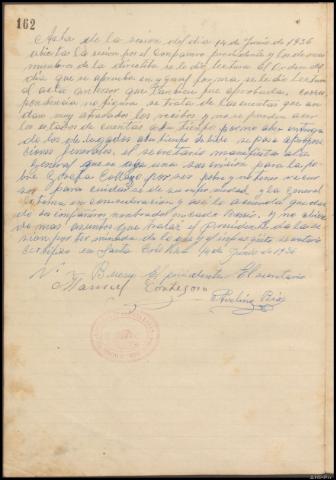 162
Acta de la sesion del dia 14 de Junio de 1936
abierta la sesion por el compañero presidente y los demas
miembros de la directiba se le dio lectura al Orden del
dia que se aprueba en ygual forma se le dio lectura
al acta anterior que tambien fue aprobada, corres
pondencia no figura se trata de las cuentas que an
dan muy atrasados los recibos y no se pueden acer
los estados de cuentas a su tiempo por no aber entrega
do los delegados a su tiempo debido se pasa a proposi
ciones generales, el secretario manifiesta a la
General que se aga una suscrision para la po
bre Josefa Collazo por ser pobre y no tiene recur
sos para cuidarse de su enfermedad y la General
la toma en consideracion y asi lo acuerda quedan
do un compañero nombrado en cada
y no abien
do mas asuntos que tratar el presidente da la se
sion por terminada de lo que yo el infrascrito secretario
certifico en Santa 14 de Junio de 1936
Vº Bueno El presidente El secretario
Manuel
Avelino